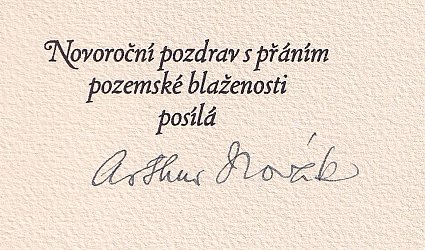 Novoroční pozdrav s přáním
pozemské blaženosti
posílá
Arthur Novák